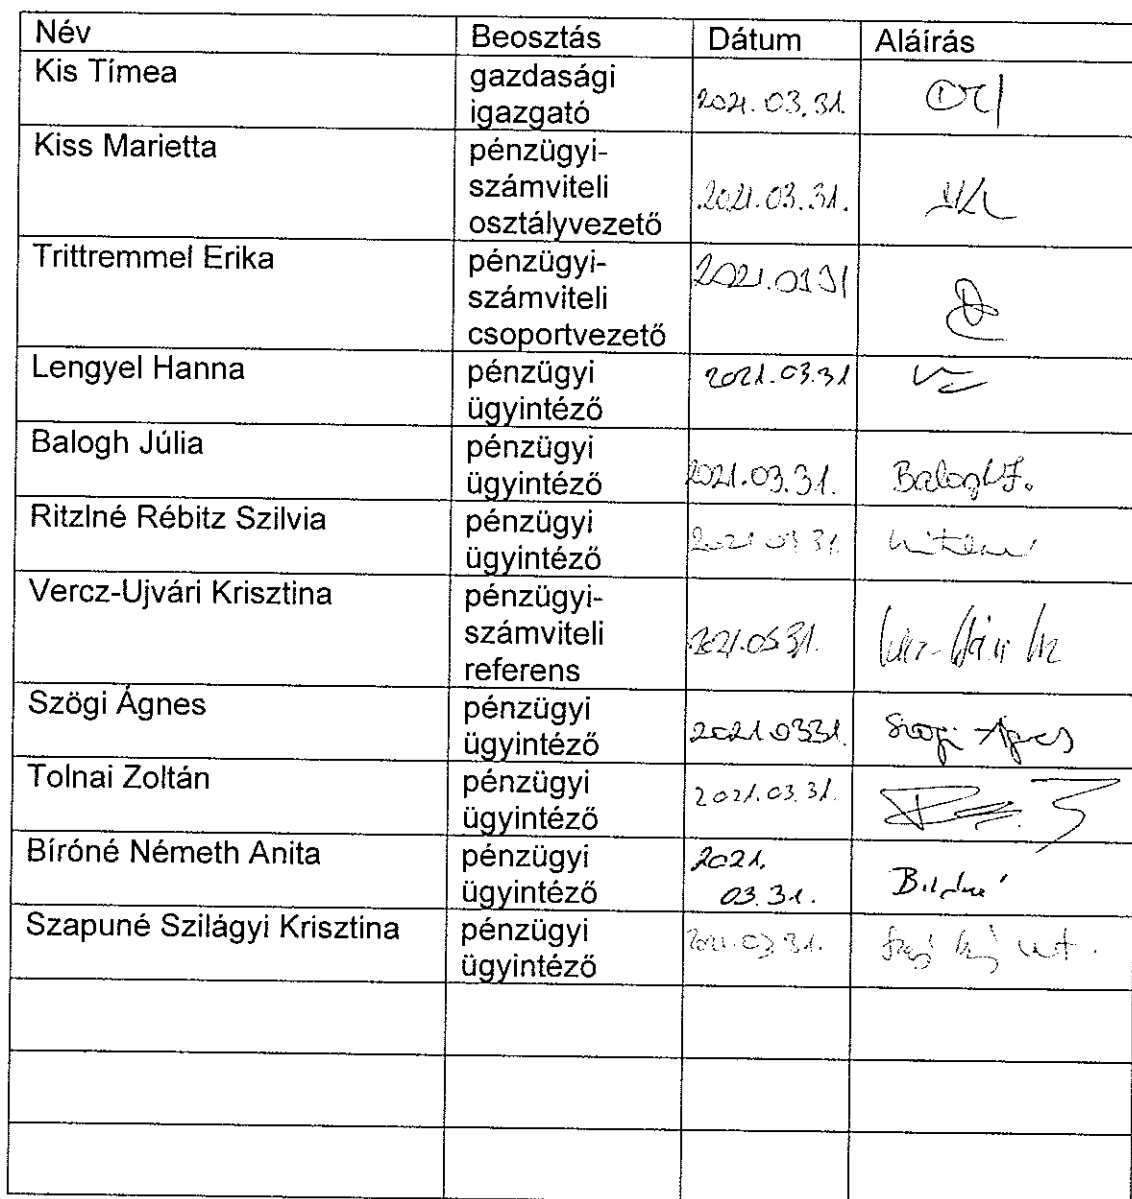 Név Beosztás Dátum Aláírás
Kis Tímea gazdasági
igazgató 2021. 03. 31.
Kiss Marietta pénzügyi-
számviteli
osztályvezető 2021.03.31.
Trittremmel Erika pénzügyi-
számviteli
csoportvezető
Lengyel Hanna pénzügyi 2021.03.31
ügyintéző
Balogh Júlia pénzügyi
ügyintéző 2021.03.31. Balogh J.
Ritzlné Rébitz Szilvia pénzügyi
ügyintéző 2021 03 31.
Vercz-Ujvári Krisztina pénzügyi-
számviteli
referens
Szögi Ágnes pénzügyi
ügyintéző 2021.0331. Szögi Ágnes
Tolnai Zoltán pénzügyi 2021.03.31.
ügyintéző
Bíróné Németh Anita pénzügyi 2021.
ügyintéző 03.31. Bíróné
Szapuné Szilágyi Krisztina pénzügyi 2021.03.31.
ügyintéző